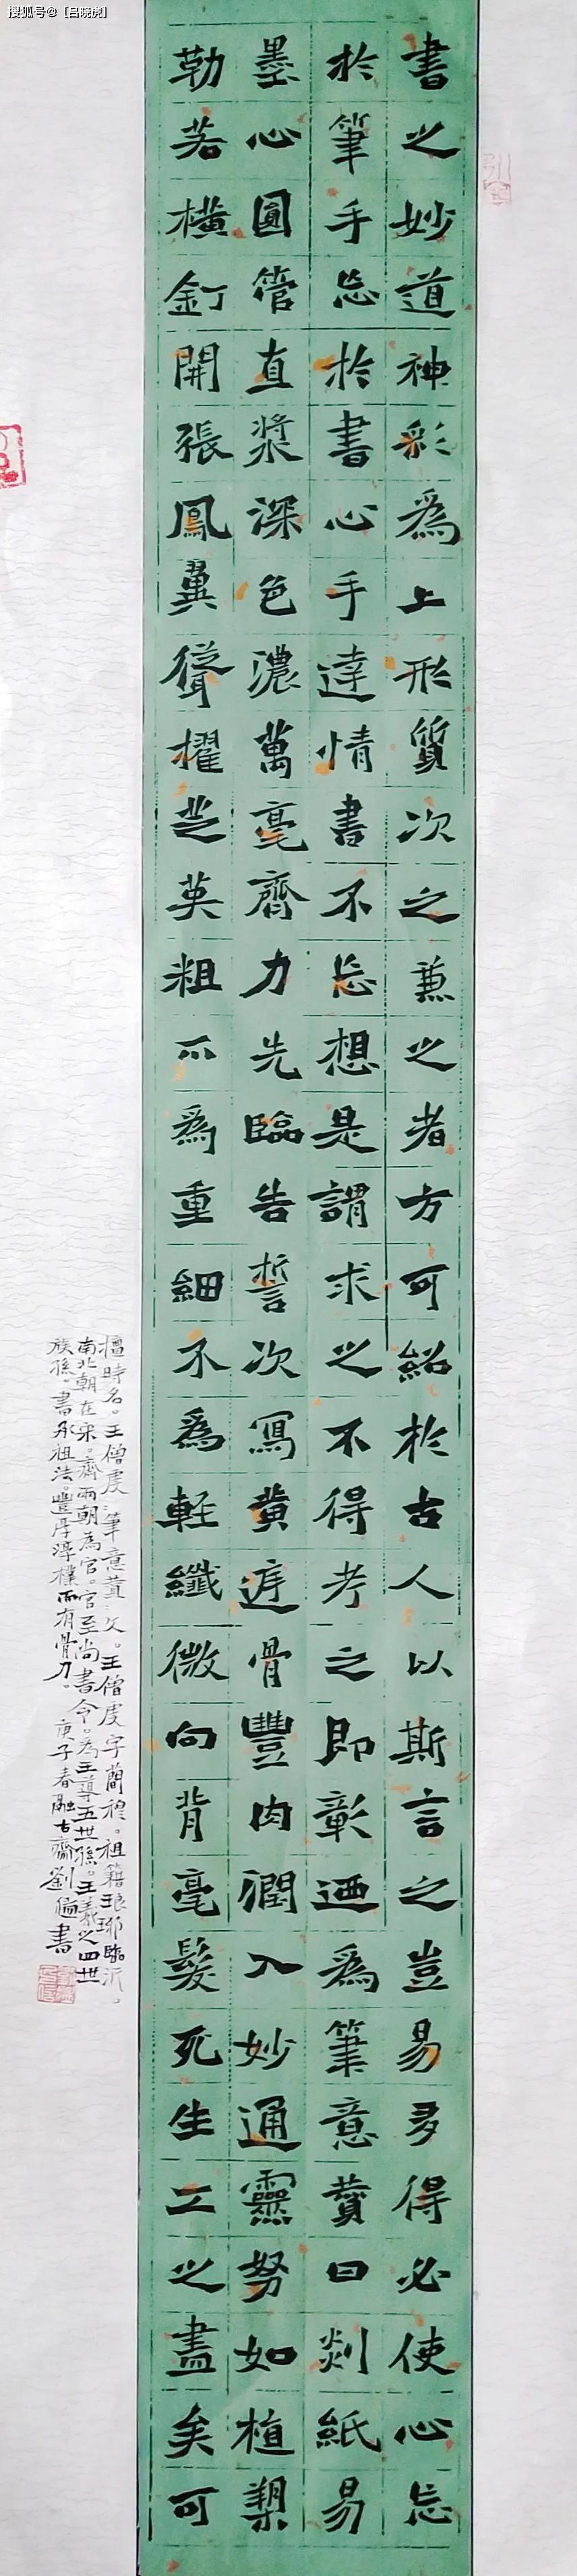 搜狐号@[吕晓虎]
書之妙道神彩為上形質次之兼之者方可紹於古人以斯言之豈易多得必使心忘
於筆手忘於書心手達情書不忘想是謂求之不得考之即彰迺為筆意贊曰剡紙易
墨心圓管直漿深色濃萬毫齊力先臨告誓次寫黃庭骨豐肉潤入妙通靈努如植槊
勒若橫釘開張鳳翼聳擢芝英粗不為重細不為輕纖微向背毫髮死生工之盡矣可
擅時名。王僧虔筆意贊文。王僧虔字簡穆。祖籍琅琊臨沂。
南北朝在宋。齊兩朝為官。官至尚書令。為王導五世孫。王羲之四世
族孫。書承祖法。豐厚淳樸而有骨力。庚子春融古齋劉書